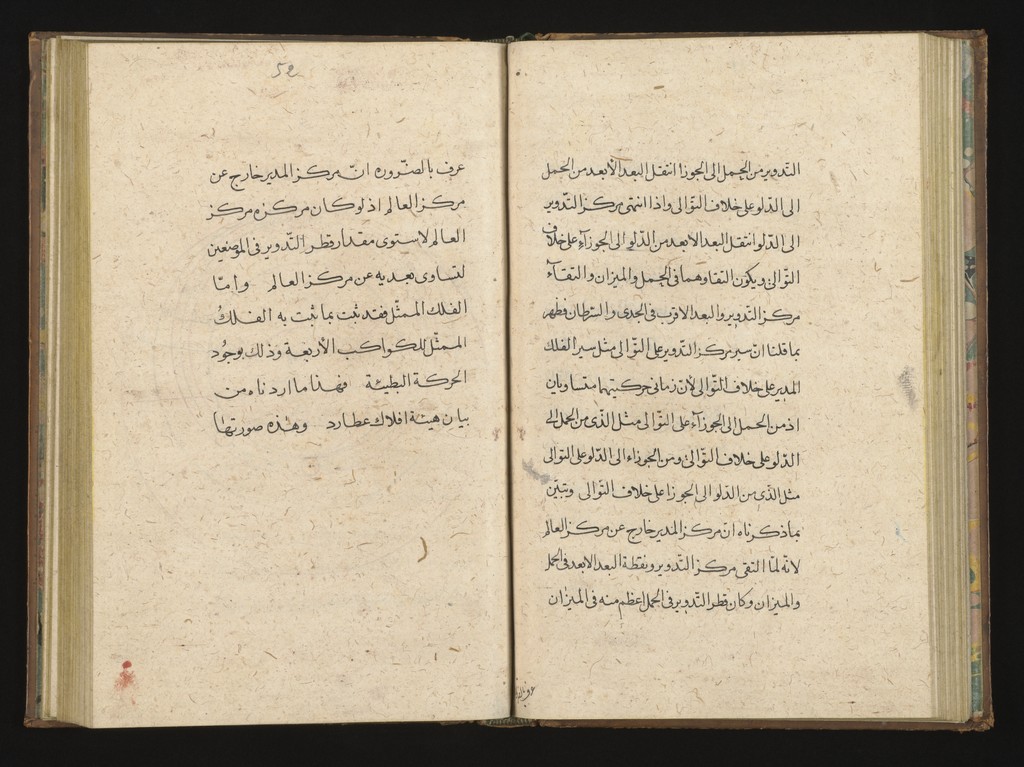 التدوير من الحمل الى الجوزا انتقل البعد الابعد من الحمل
الى الدلو على خلاف التوالى واذا انتهى مركز التدوير
الى الدلو انتقل البعد الابعد من الدلو الى الجوزآء على خلاف
التوالى ويكون التقاوهما فى الحمل والميزان والتقآء
مركز التدوير والبعد الاقرب فى الجدى والسرطان فظهر
بما قلنا ان سير مركز التدوير على التوالى مثل سير الفلك
المدير على خلاف التوالى لان زمانى حركتيهما متساويان
اذ من الحمل الى الجوزآء على التوالى مثل الذى من الحمل الى
الدلو على خلاف التوالى ومن الجوزاء الى الدلو على التوالى
مثل الذى من الدلو الى الجوزا على خلاف التوالى ويتبين
بما ذكرناه ان مركز المدير خارج عن مركز العالم
لانه لما التقى مركز التدوير ونقطة البعد الابعد فى الحمل
والميزان وكان قطر التدوير فى الحمل اعظم منه فى الميزان
عرف بالضروره
٥٢
عرف بالضروره ان مركز المدير خارج عن
مركز العالم اذ لو كان مركزه مركز
العالم لاستوى مقدار قطر التدوير فى الموضعين
لتساوى بعديه عن مركز العالم وامّا
الفلك الممثّل فقد ثبت بما ثبت به الفلكُ
الممثّل للكواكب الأربعة وذلك بوجُود
الحركة البطيئة فهذا ما اردناه من
بيان هيئة افلاك عطارد وهذه صورتها